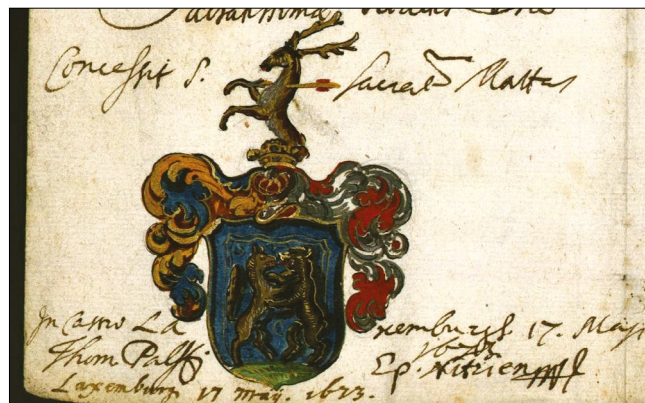 Concessit S. Sacra Mattas
In Castro La xemburgh 17. Maji
Thom Palffi Ep. Nitrien
Laxemburg 17 May. 1673.